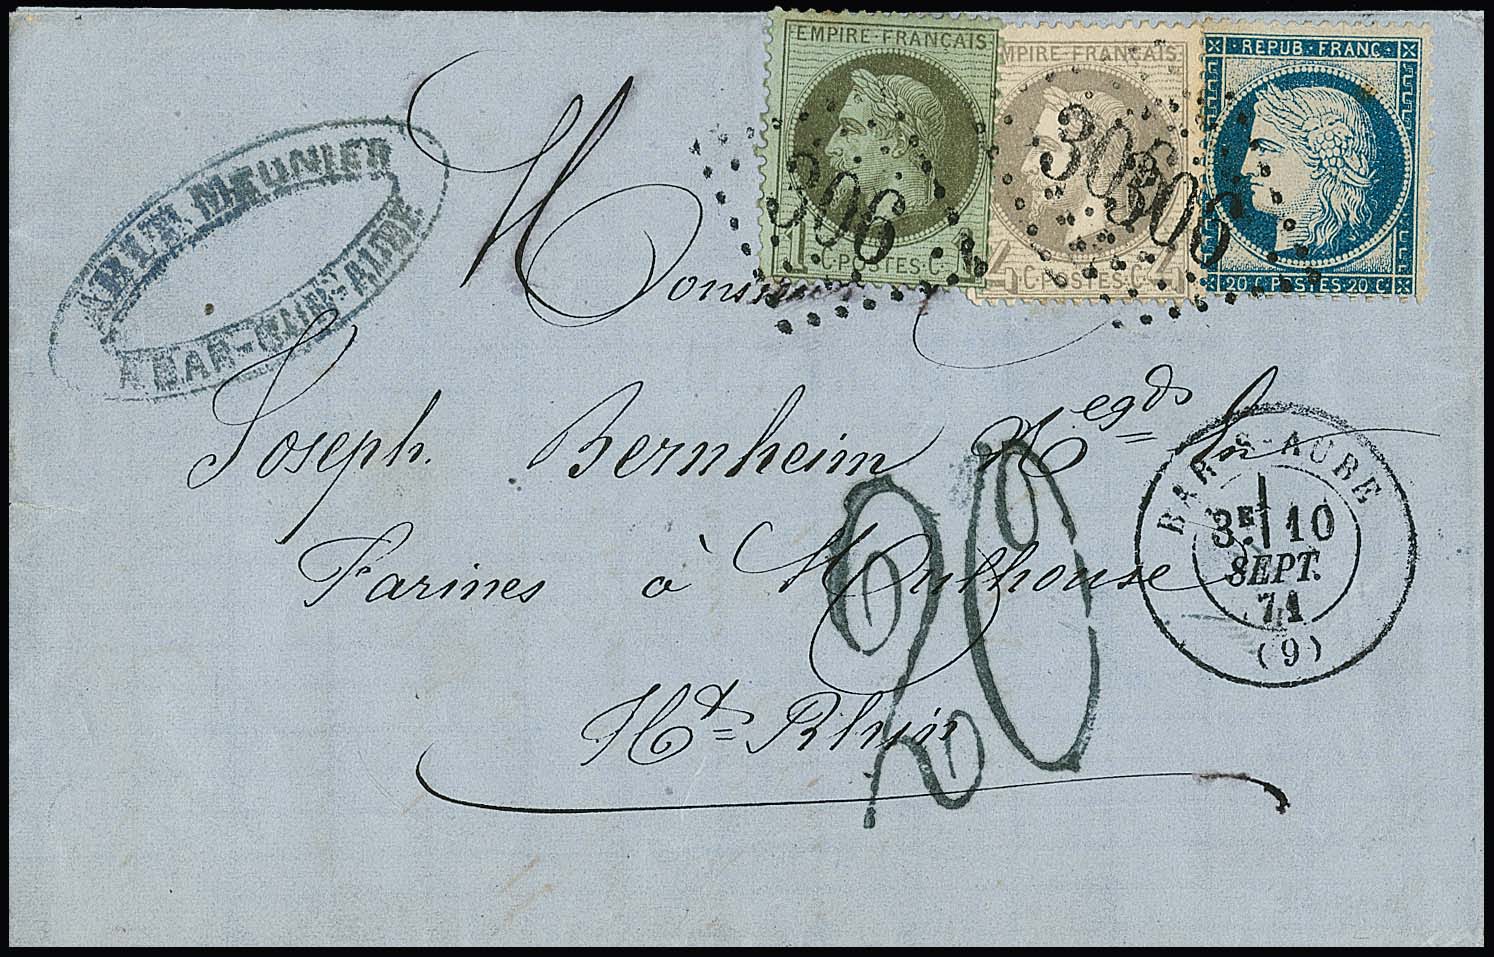 EMPIRE FRANÇAIS
1 C. POSTES C.
306
MPIRE FRANÇAIS
4 C. POSTES C. 4
306
306
REPUB. FRANC.
20 C. POSTES 20 C.
MEUNIER
A BAR-SUR-AUBE
Monsieur
Joseph Bernheim Negds en
Farines à Mulhouse
Ht Rhin
20
BAR-S-AUBE
3E 10
SEPT.
71
(9)